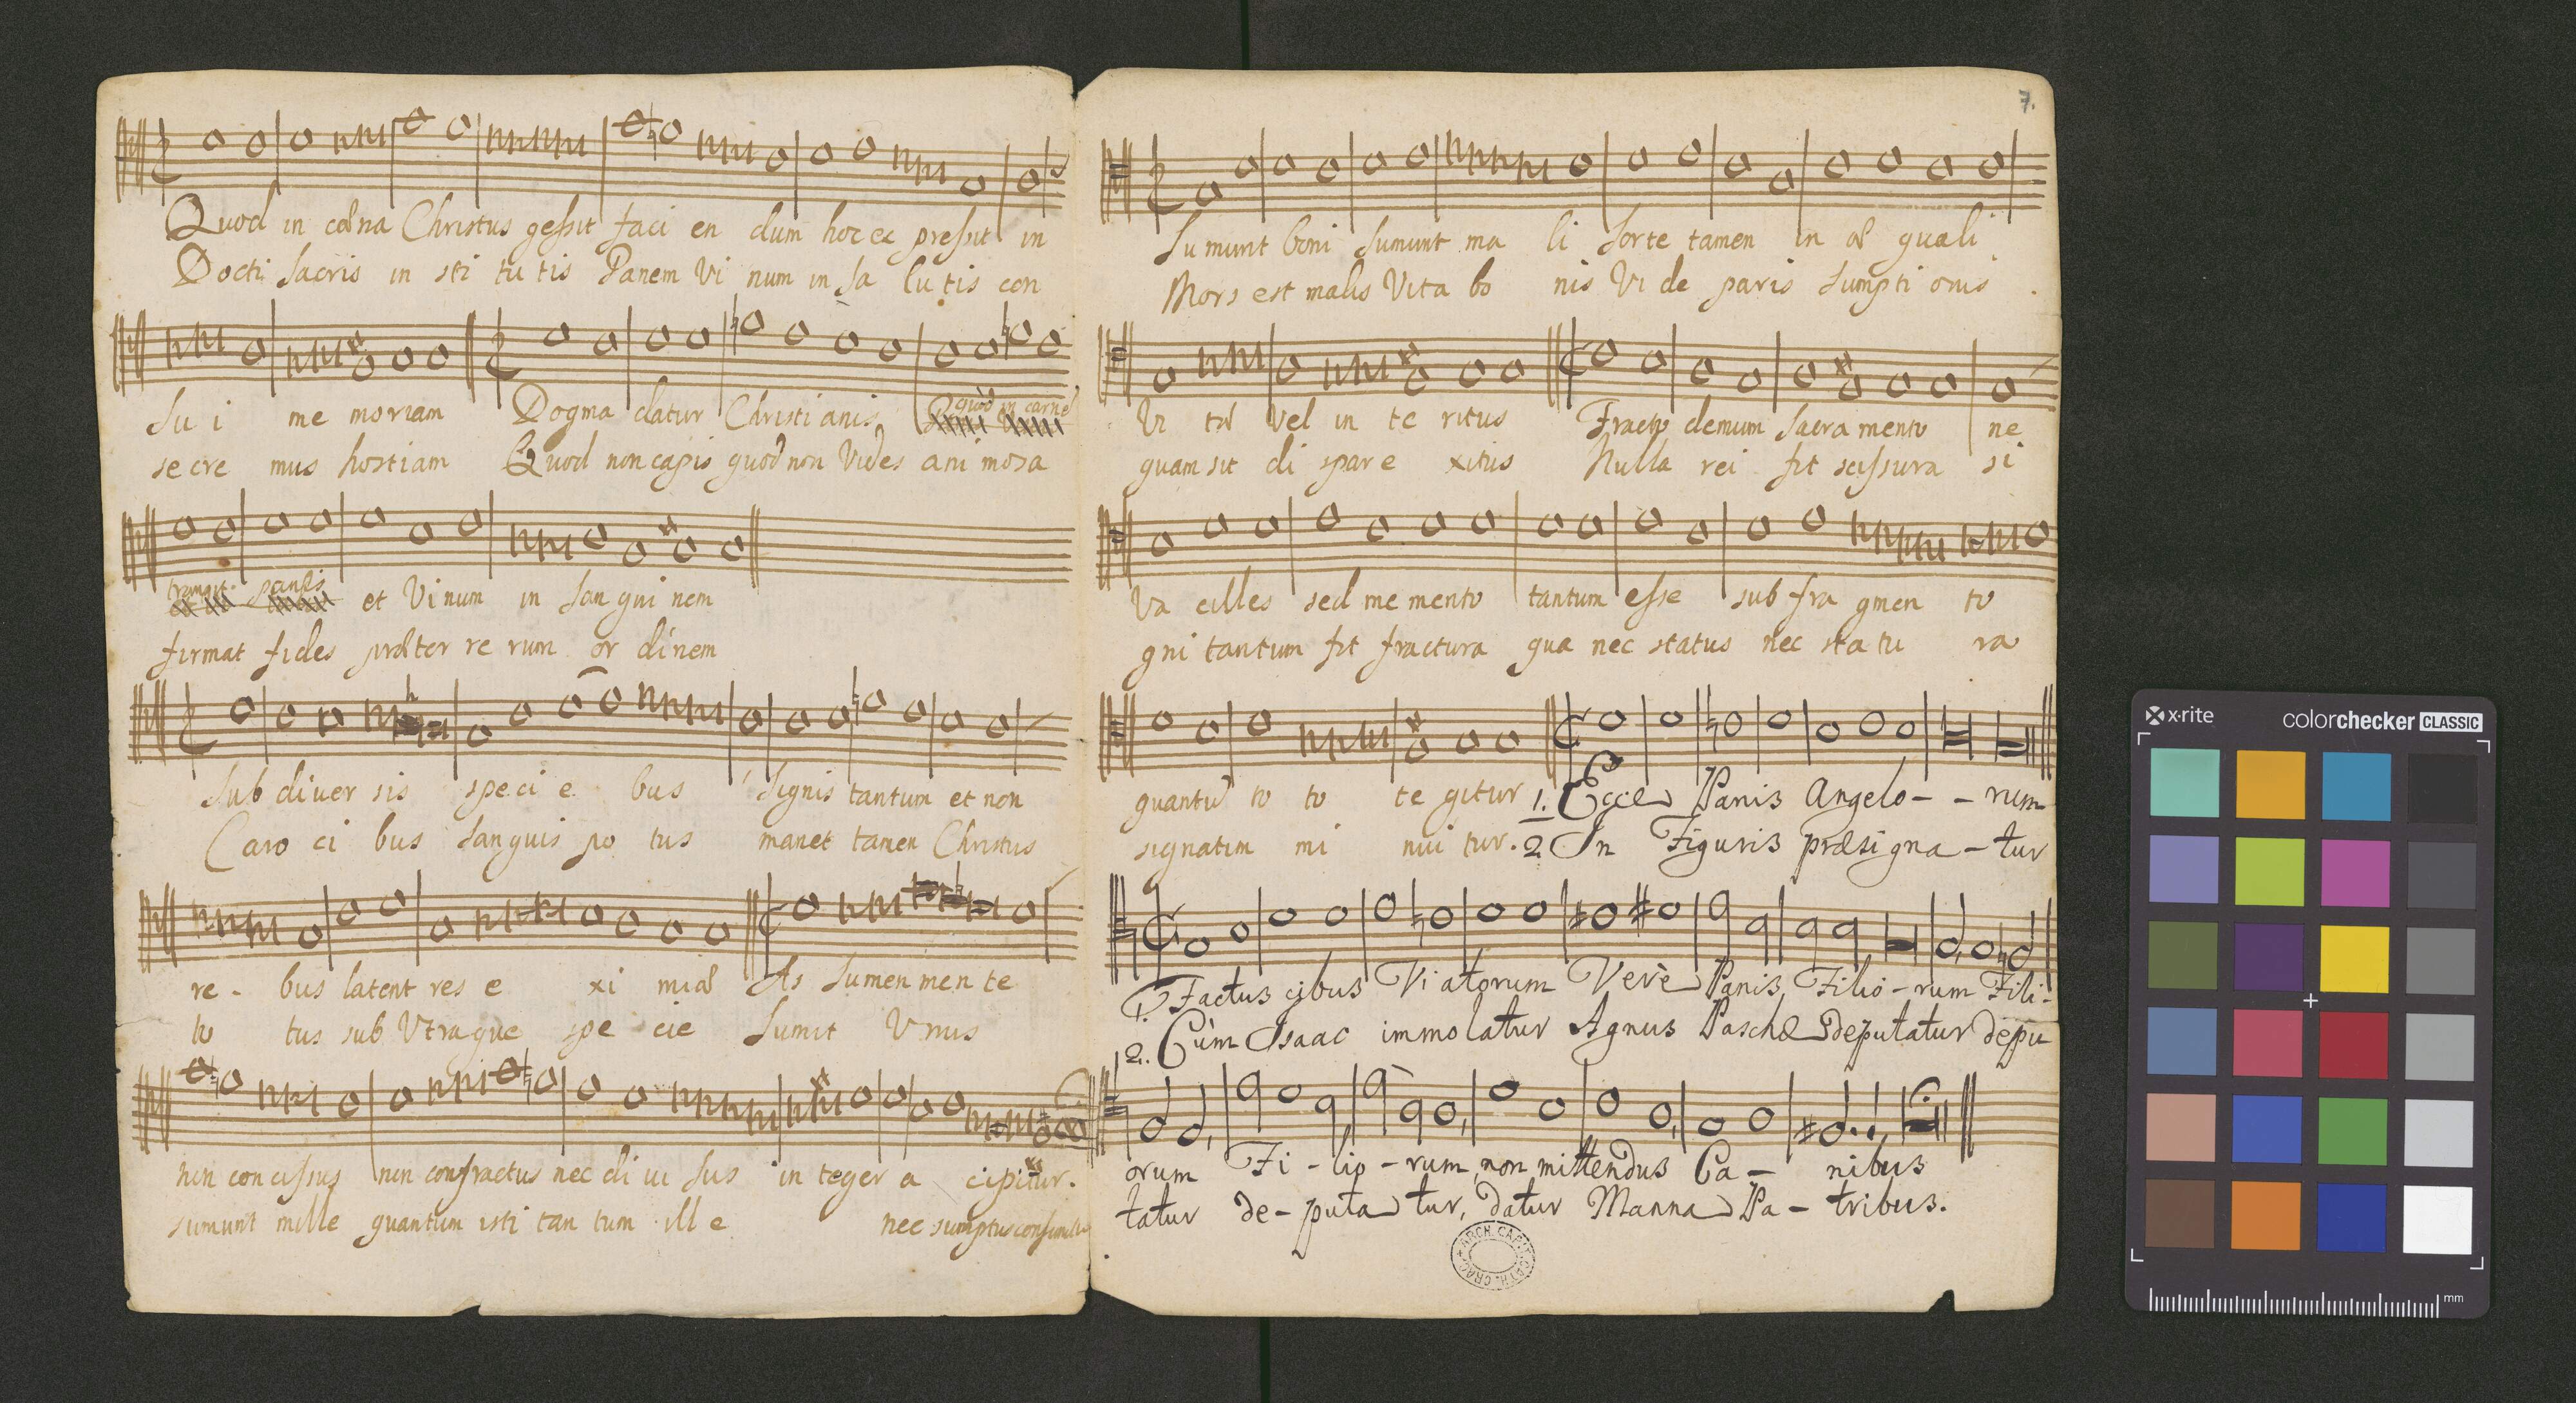 Quod in cœna Christus geſsit faci en dum hoc ex preſsit in
Docti Sacris in sti tu tis Panem Vi num in Sa lu tis con
Su i me moriam Dogma datur Christi anis quod in carne
se cre mus hostiam Quod non capis quod non Vides ani mosa
transit panis et Vinum in San gui nem
firmat fides præter re rum or dinem
Sub diver sis speci e bus Signis tantum et non
Caro ci bus Sanguis po tus manet tamen Christus
re - bus latent res e xi miæ As Sumen men te
to tus sub Utraque spe cie Sumit Unus
non con ciſsus non confractus nec di ui Sus in teger a cipitur.
sumunt mille quantum isti tan tum ill e nec sumptus consumitur
7.
Su munt boni Sumunt ma li Sorte tamen in æ quali
Mors est malis Vita bo nis Vi de paris Sumpti onis .
Vi tæ Vel in te ritus Fracto demum Sacra mento ne
quam sit di spar e xitus Nulla rei fit sciſsura si
Va cilles sed me mento tantum eſse sub fra gmen to
gni tantum fit fractura qua nec status nec sta tu ra
quantu to to te gitur 1. Ecce Panis Angelo - - rum
signatim mi nui tur. 2 In Figuris præsi gna - tur
1. Factus cibus Vi atorum Verè Panis Filio - rum Fili-
2. Cùm Isaac immo latur Agnus Paschæ deputatur depu
orum Fi - lio - rum, non mittendus Ca - nibus
tatur de - puta tur, datur Manna Pa - tribus.
ARCH. CAPIT. CATH. CRAC.
x-rite colorchecker CLASSIC
mm